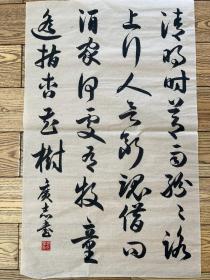 清明时节雨纷〻路
上行人欲断魂借问
酒家何处有牧童
遥指杏花树 广志书